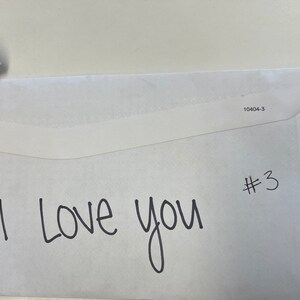 10404-3
#3
I Love you